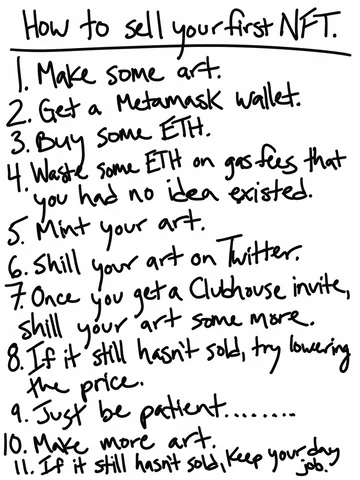 How to sell your first NFT.
1. Make some art.
2. Get a Metamask wallet.
3. Buy some ETH.
4. Waste some ETH on gas fees that
you had no idea existed.
5. Mint your art.
6. Shill your art on Twitter.
7. Once you get a Clubhouse invite,
shill your art some more.
8. If it still hasn't sold, try lowering
the price.
9. Just be patient........
10. Make more art.
11. If it still hasn't sold, keep your day
job.